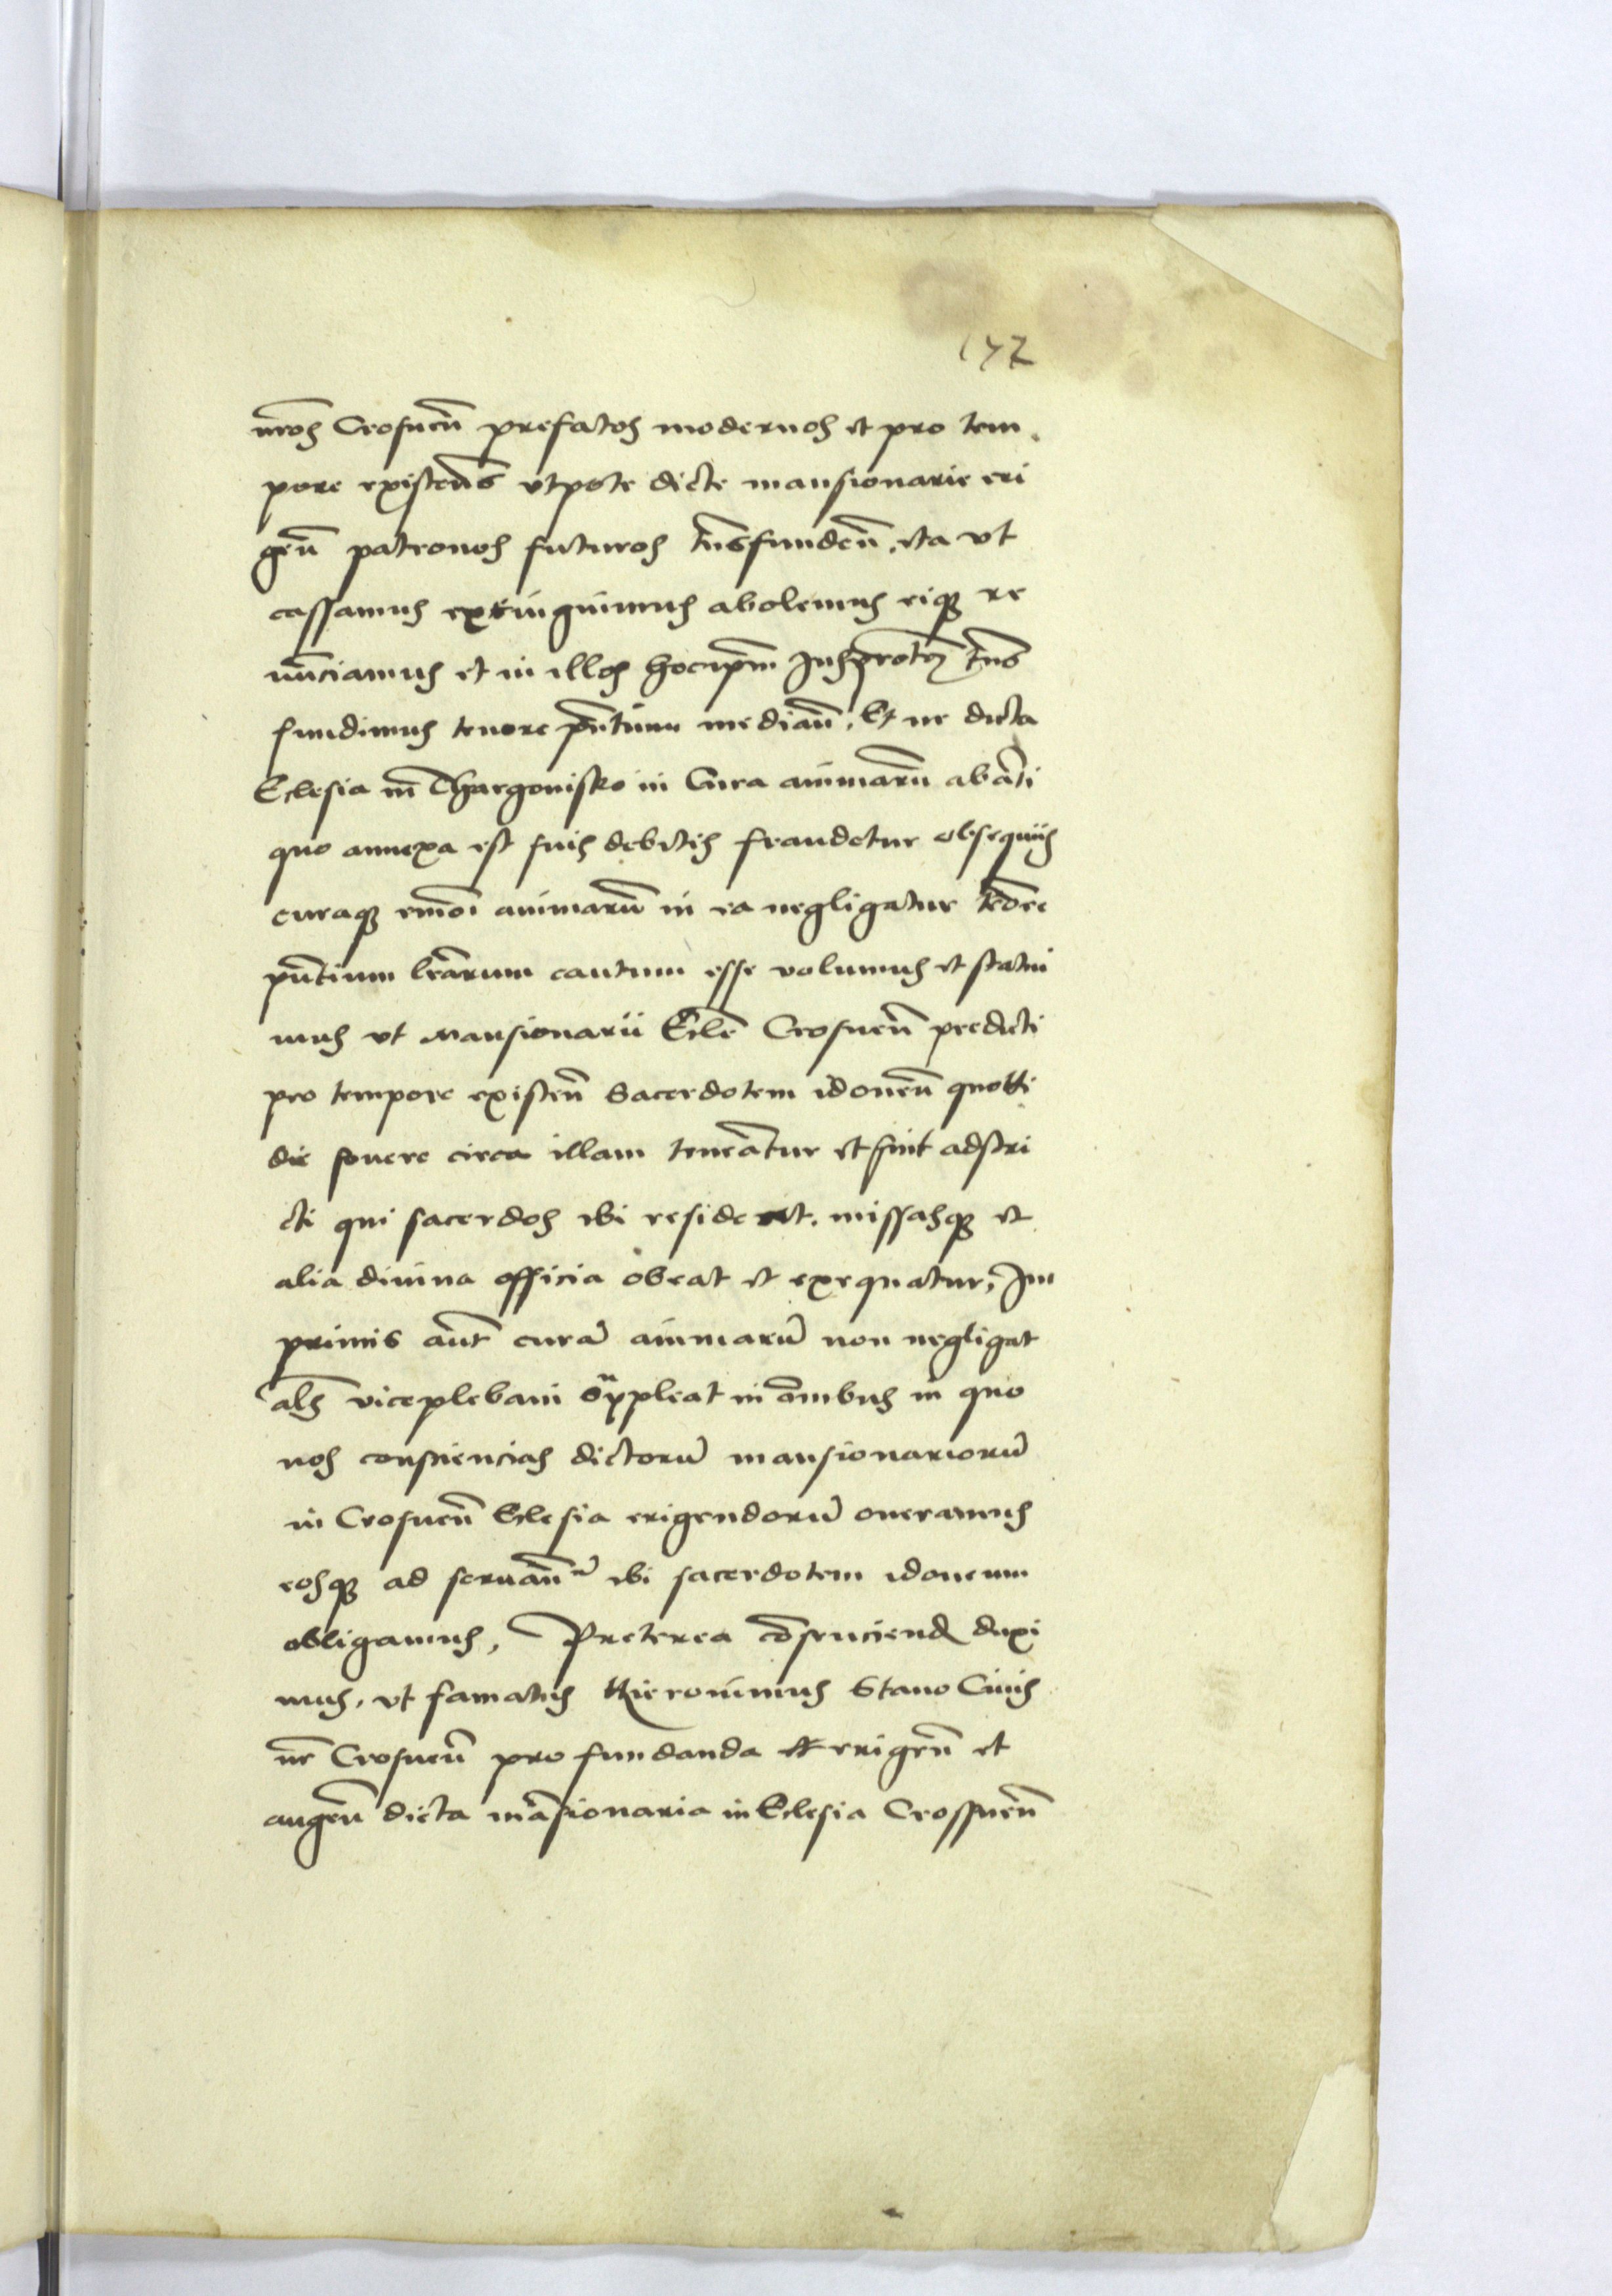 172
nr̃os Crosneñ prefatos modernos et pro tem
pore existeñs vtpote dicte mansionarie eri
geñ patronos futuros trñsfundeñ, ita vt
cassamus extinguimus abolemus eiqȝ re
nũciamus et in illos hocip̃m Jus tñs
fundimus tenore pñtium mediañ, Et ne dicta
Eclesia in Thargovisko in Cura animarũ ab ãti
quo annexa est suis debitis fraudetur obsequiis
curaqȝ animarũ in ea negligatur
pñtium lrãrum cautum esse volumus et statui
mus vt Mansionarii Ecle Crosneñ predicti
pro tempore existeñ Sacerdotem idoneũ quotti
die fouere circa illam teneãtur et sint adstri
cti qui sacerdos ibi resideat, missasqȝ et
alia diuina officia obeat et exequatur, Im
primis aũt curã animarũ non negligat
als̃ viceplebani suppleat in om̃ibus in quo
nos consciencias dictorũ mansionariorũ
in Crosneñ Eclesia erigendorũ oneramus
eosqȝ ad ibi sacerdotem idoneum
obligamus, Preterea duxi
mus, vt famatus Hieronimus Stano Ciuis
nr̃ Crosneñ pro fundanda et erigeñ et
augeñ dicta mãsionaria in Eclesia Crossneñ